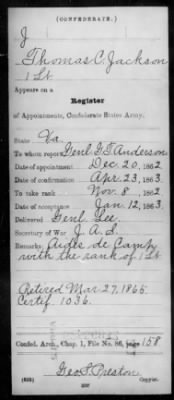 (CONFEDERATE.)
J
Thomas C. Jackson
1 Lt
Appears on a
Register
of Appointments, Confederate States Army.
State Va
To whom report Genl G T Anderson
Date of appointment Dec 20, 1862
Date of confirmation Apr 23, 1863
To take rank Nov 8, 1862
Date of acceptance Jan 12, 1863
Delivered Genl Lee
Secretary of War J. A. S.
Remarks: Aides de Camp
with the rank of 1 Lt
Retired Mar 27, 1865
Certif 1036.
Confed. Arch., Chap. 1, File No. 86, page 158
Geo S. Preston
Copyist.